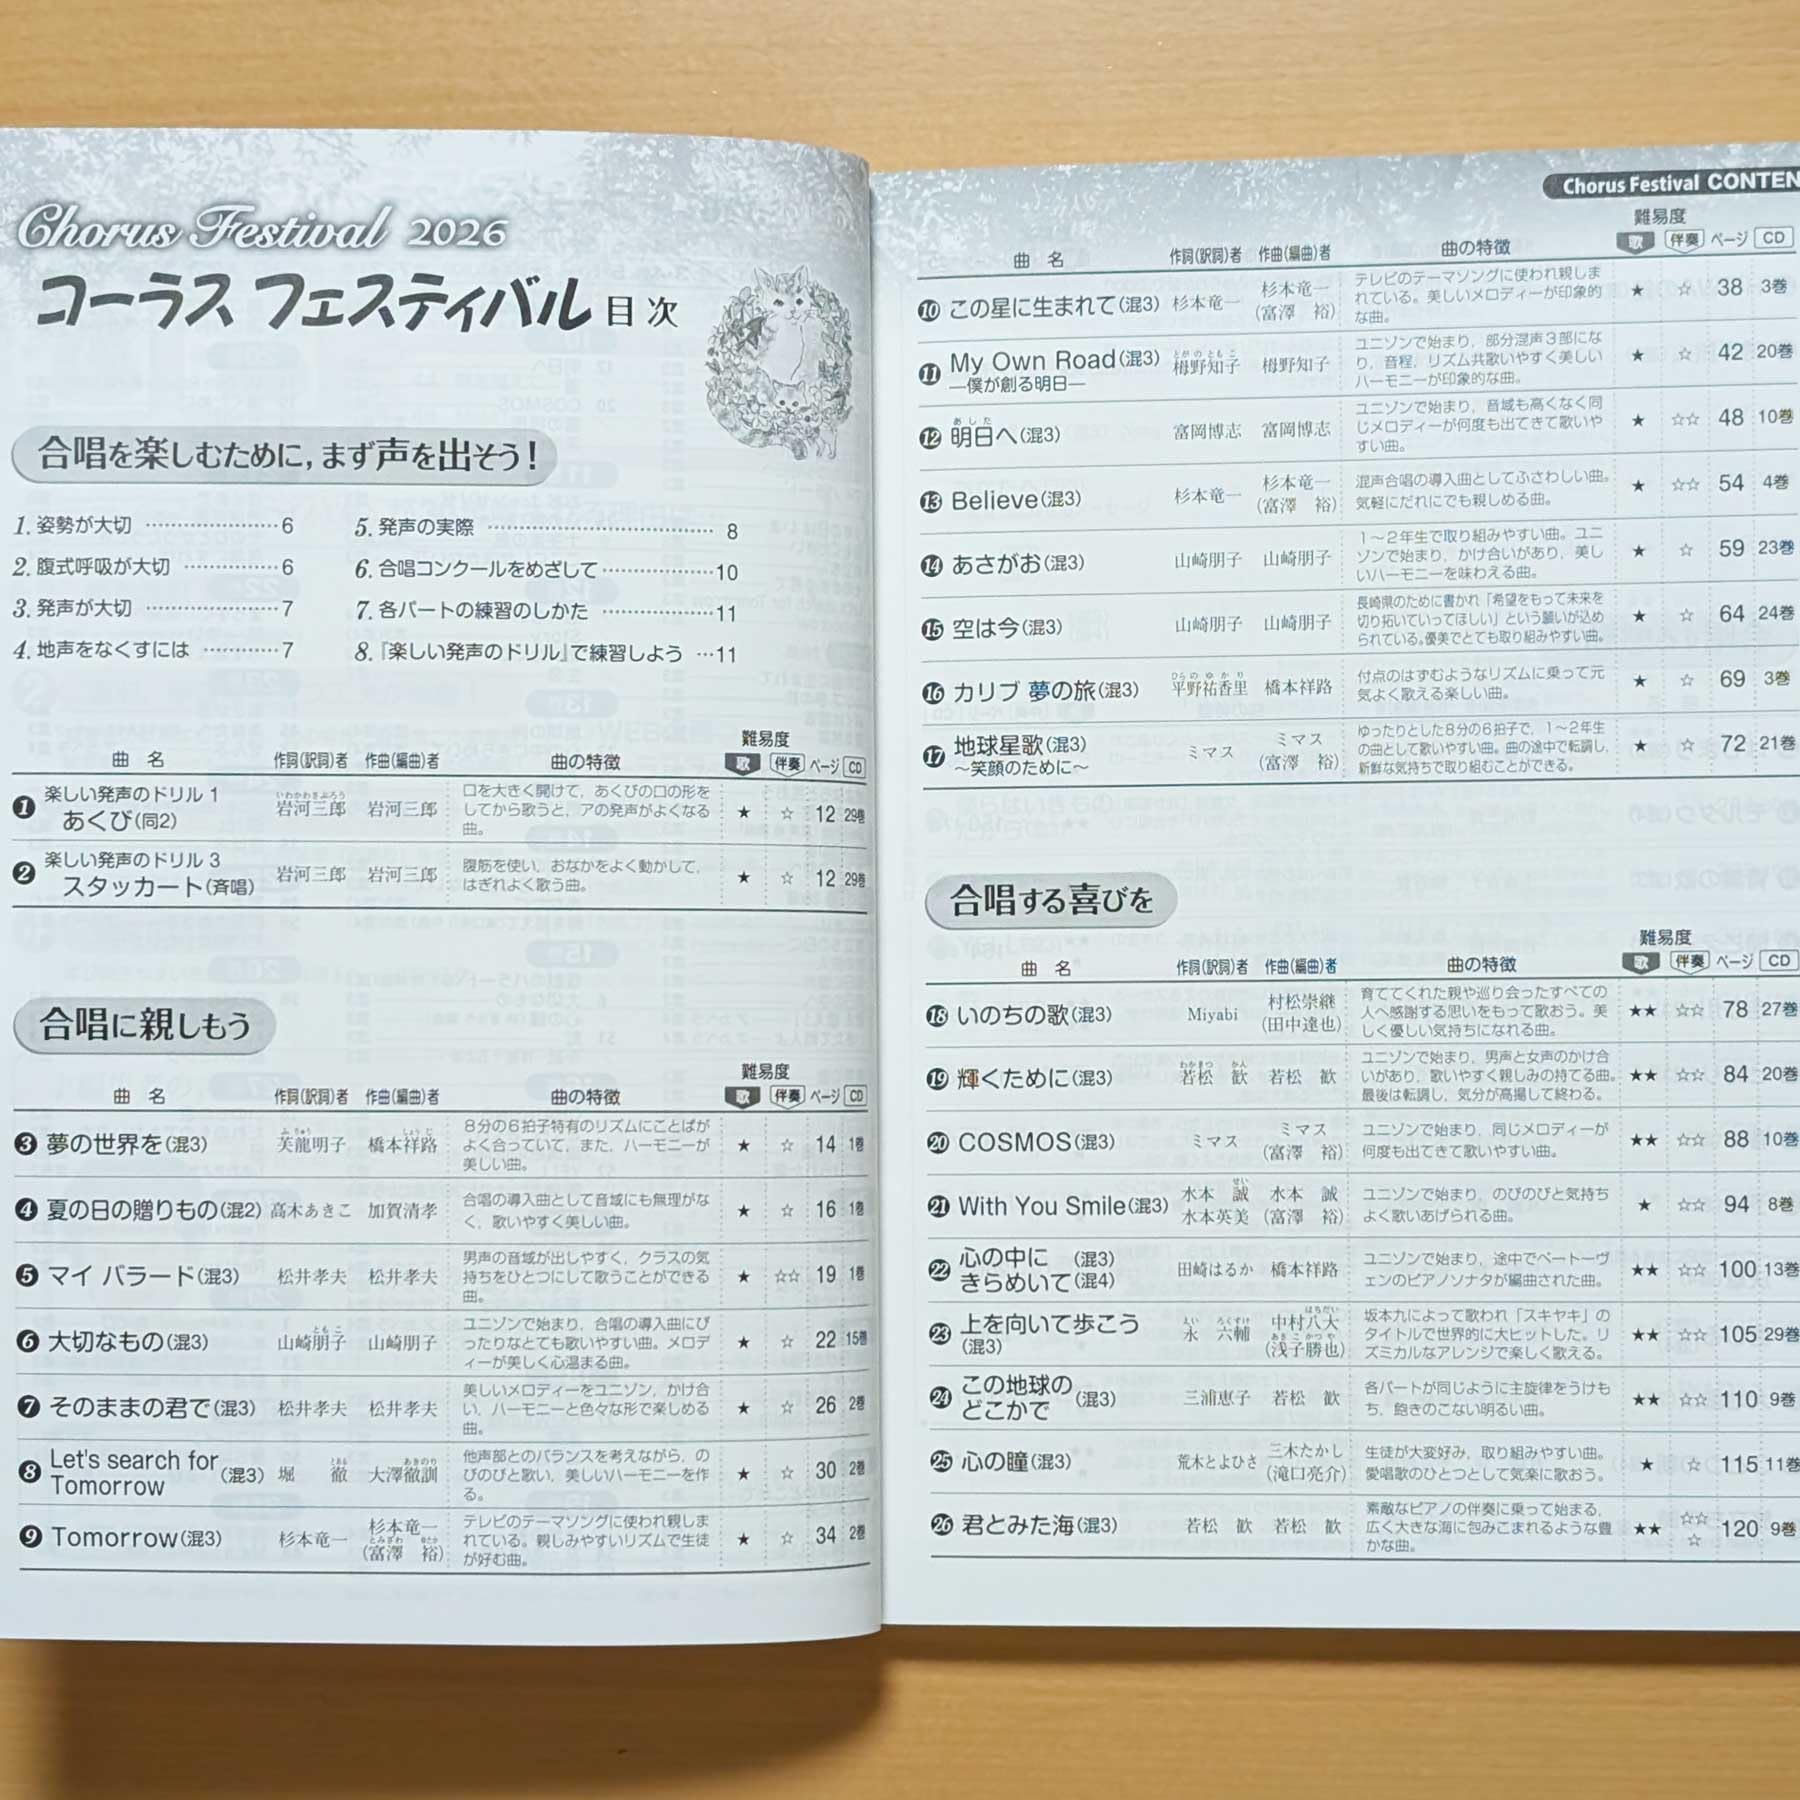 Chorus Festival 2026
コーラス フェスティバル 目次
合唱を楽しむために，まず声を出そう！
1. 姿勢が大切 …………………6
2. 腹式呼吸が大切 ……………6
3. 発声が大切 …………………7
4. 地声をなくすには …………7
5. 発声の実際 ……………………………8
6. 合唱コンクールをめざして……………10
7. 各パートの練習のしかた ……………11
8. 『楽しい発声のドリル』で練習しよう …11
難易度
曲 名 作詞(訳詞)者 作曲(編曲)者 曲の特徴 歌 伴奏 ページ CD
❶ 楽しい発声のドリル 1
あくび(同2) 岩河三郎 いわかわさぶろう 岩河三郎 口を大きく開けて，あくびの口の形を
してから歌うと，アの発声がよくなる
曲。 ★ ☆ 12 29巻
❷ 楽しい発声のドリル 3
スタッカート(斉唱) 岩河三郎 岩河三郎 腹筋を使い，おなかをよく動かして，
はぎれよく歌う曲。 ★ ☆ 12 29巻
合唱に親しもう
難易度
曲 名 作詞(訳詞)者 作曲(編曲)者 曲の特徴 歌 伴奏 ページ CD
❸ 夢の世界を(混3) 芙龍明子 橋本祥路 8分の6拍子特有のリズムにことばが
よく合っていて，また，ハーモニーが
美しい曲。 ★ ☆ 14 1巻
❹ 夏の日の贈りもの(混2) 高木あきこ 加賀清孝 合唱の導入曲として音域にも無理がな
く，歌いやすく美しい曲。 ★ ☆ 16 1巻
❺ マイ バラード(混3) 松井孝夫 松井孝夫 男声の音域が出しやすく，クラスの気
持ちをひとつにして歌うことができる
曲。 ★ ☆☆ 19 1巻
❻ 大切なもの(混3) 山崎朋子 ともこ 山崎朋子 ユニゾンで始まり，合唱の導入曲にぴ
ったりなとても歌いやすい曲。メロデ
ィーが美しく心温まる曲。 ★ ☆ 22 15巻
❼ そのままの君で(混3) 松井孝夫 松井孝夫 美しいメロディーをユニゾン，かけ合
い，ハーモニーと色々な形で楽しめる
曲。 ★ ☆ 26 2巻
❽ Let's search for
Tomorrow (混3) 堀 徹 とおる 大澤徹訓 あきのり 他声部とのバランスを考えながら，の
びのびと歌い，美しいハーモニーを作
る。 ★ ☆ 30 2巻
❾ Tomorrow(混3) 杉本竜一 杉本竜一
(富澤 裕) とみざわ ゆたか テレビのテーマソングに使われ親しま
れている。親しみやすいリズムで生徒
が好む曲。 ★ ☆ 34 2巻
Chorus Festival CONTEN
難易度
曲 名 作詞(訳詞)者 作曲(編曲)者 曲の特徴 歌 伴奏 ページ CD
❿ この星に生まれて(混3) 杉本竜一 杉本竜一
(富澤 裕) テレビのテーマソングに使われ親しま
れている。美しいメロディーが印象的
な曲。 ★ ☆ 38 3巻
⓫ My Own Road(混3)
―僕が創る明日― 栂野知子 とがのともこ 栂野知子 ユニゾンで始まり，部分混声3部にな
り，音程，リズム共歌いやすく美しい
ハーモニーが印象的な曲。 ★ ☆ 42 20巻
⓬ 明日へ(混3) あした 富岡博志 富岡博志 ユニゾンで始まり，音域も高くなく同
じメロディーが何度も出てきて歌いや
すい曲。 ★ ☆☆ 48 10巻
⓭ Believe(混3) 杉本竜一 杉本竜一
(富澤 裕) 混声合唱の導入曲としてふさわしい曲。
気軽にだれにでも親しめる曲。 ★ ☆☆ 54 4巻
⓮ あさがお(混3) 山崎朋子 山崎朋子 1～2年生で取り組みやすい曲。ユニ
ゾンで始まり，かけ合いがあり，美し
いハーモニーを味わえる曲。 ★ ☆ 59 23巻
⓯ 空は今(混3) 山崎朋子 山崎朋子 長崎県のために書かれ「希望をもって未来を
切り拓いていってほしい」という願いが込め
られている。優美でとても取り組みやすい曲。 ★ ☆ 64 24巻
⓰ カリブ 夢の旅(混3) 平野祐香里 ひらのゆかり 橋本祥路 付点のはずむようなリズムに乗って元
気よく歌える楽しい曲。 ★ ☆ 69 3巻
⓱ 地球星歌(混3)
～笑顔のために～ ミマス ミマス
(富澤 裕) ゆったりとした8分の6拍子で，1～2年生
の曲として歌いやすい曲。曲の途中で転調し，
新鮮な気持ちで取り組むことができる。 ★ ☆ 72 21巻
合唱する喜びを
難易度
曲 名 作詞(訳詞)者 作曲(編曲)者 曲の特徴 歌 伴奏 ページ CD
⓲ いのちの歌(混3) Miyabi 村松崇継
(田中達也) 育ててくれた親や巡り会ったすべての
人へ感謝する思いをもって歌おう。美
しく優しい気持ちになれる曲。 ★★ ☆☆ 78 27巻
⓳ 輝くために(混3) 若松 歓 わかまつ かん 若松 歓 ユニゾンで始まり，男声と女声のかけ合
いがあり，歌いやすく親しみの持てる曲。
最後は転調し，気分が高揚して終わる。 ★★ ☆☆ 84 20巻
⓴ COSMOS(混3) ミマス ミマス
(富澤 裕) ユニゾンで始まり，同じメロディーが
何度も出てきて歌いやすい曲。 ★★ ☆☆ 88 10巻
㉑ With You Smile(混3) 水本 誠 せい
水本英美 水本 誠
(富澤 裕) ユニゾンで始まり，のびのびと気持ち
よく歌いあげられる曲。 ★ ☆☆ 94 8巻
㉒ 心の中に (混3)
きらめいて(混4) 田崎はるか 橋本祥路 ユニゾンで始まり，途中でベートーヴ
ェンのピアノソナタが編曲された曲。 ★★ ☆☆ 100 13巻
㉓ 上を向いて歩こう
(混3) 永 六輔 えい ろくすけ 中村八大 はちだい
(浅子勝也) あさこかつや 坂本九によって歌われ「スキヤキ」の
タイトルで世界的に大ヒットした。リ
ズミカルなアレンジで楽しく歌える。 ★★ ☆☆ 105 29巻
㉔ この地球の
どこかで (混3) 三浦恵子 若松 歓 各パートが同じように主旋律をうけも
ち，飽きのこない明るい曲。 ★★ ☆☆ 110 9巻
㉕ 心の瞳(混3) 荒木とよひさ 三木たかし
(滝口亮介) 生徒が大変好み，取り組みやすい曲。
愛唱歌のひとつとして気楽に歌おう。 ★ ☆ 115 11巻
㉖ 君とみた海(混3) 若松 歓 若松 歓 素敵なピアノの伴奏に乗って始まる，
広く大きな海に包みこまれるような豊
かな曲。 ★★ ☆☆☆ 120 9巻